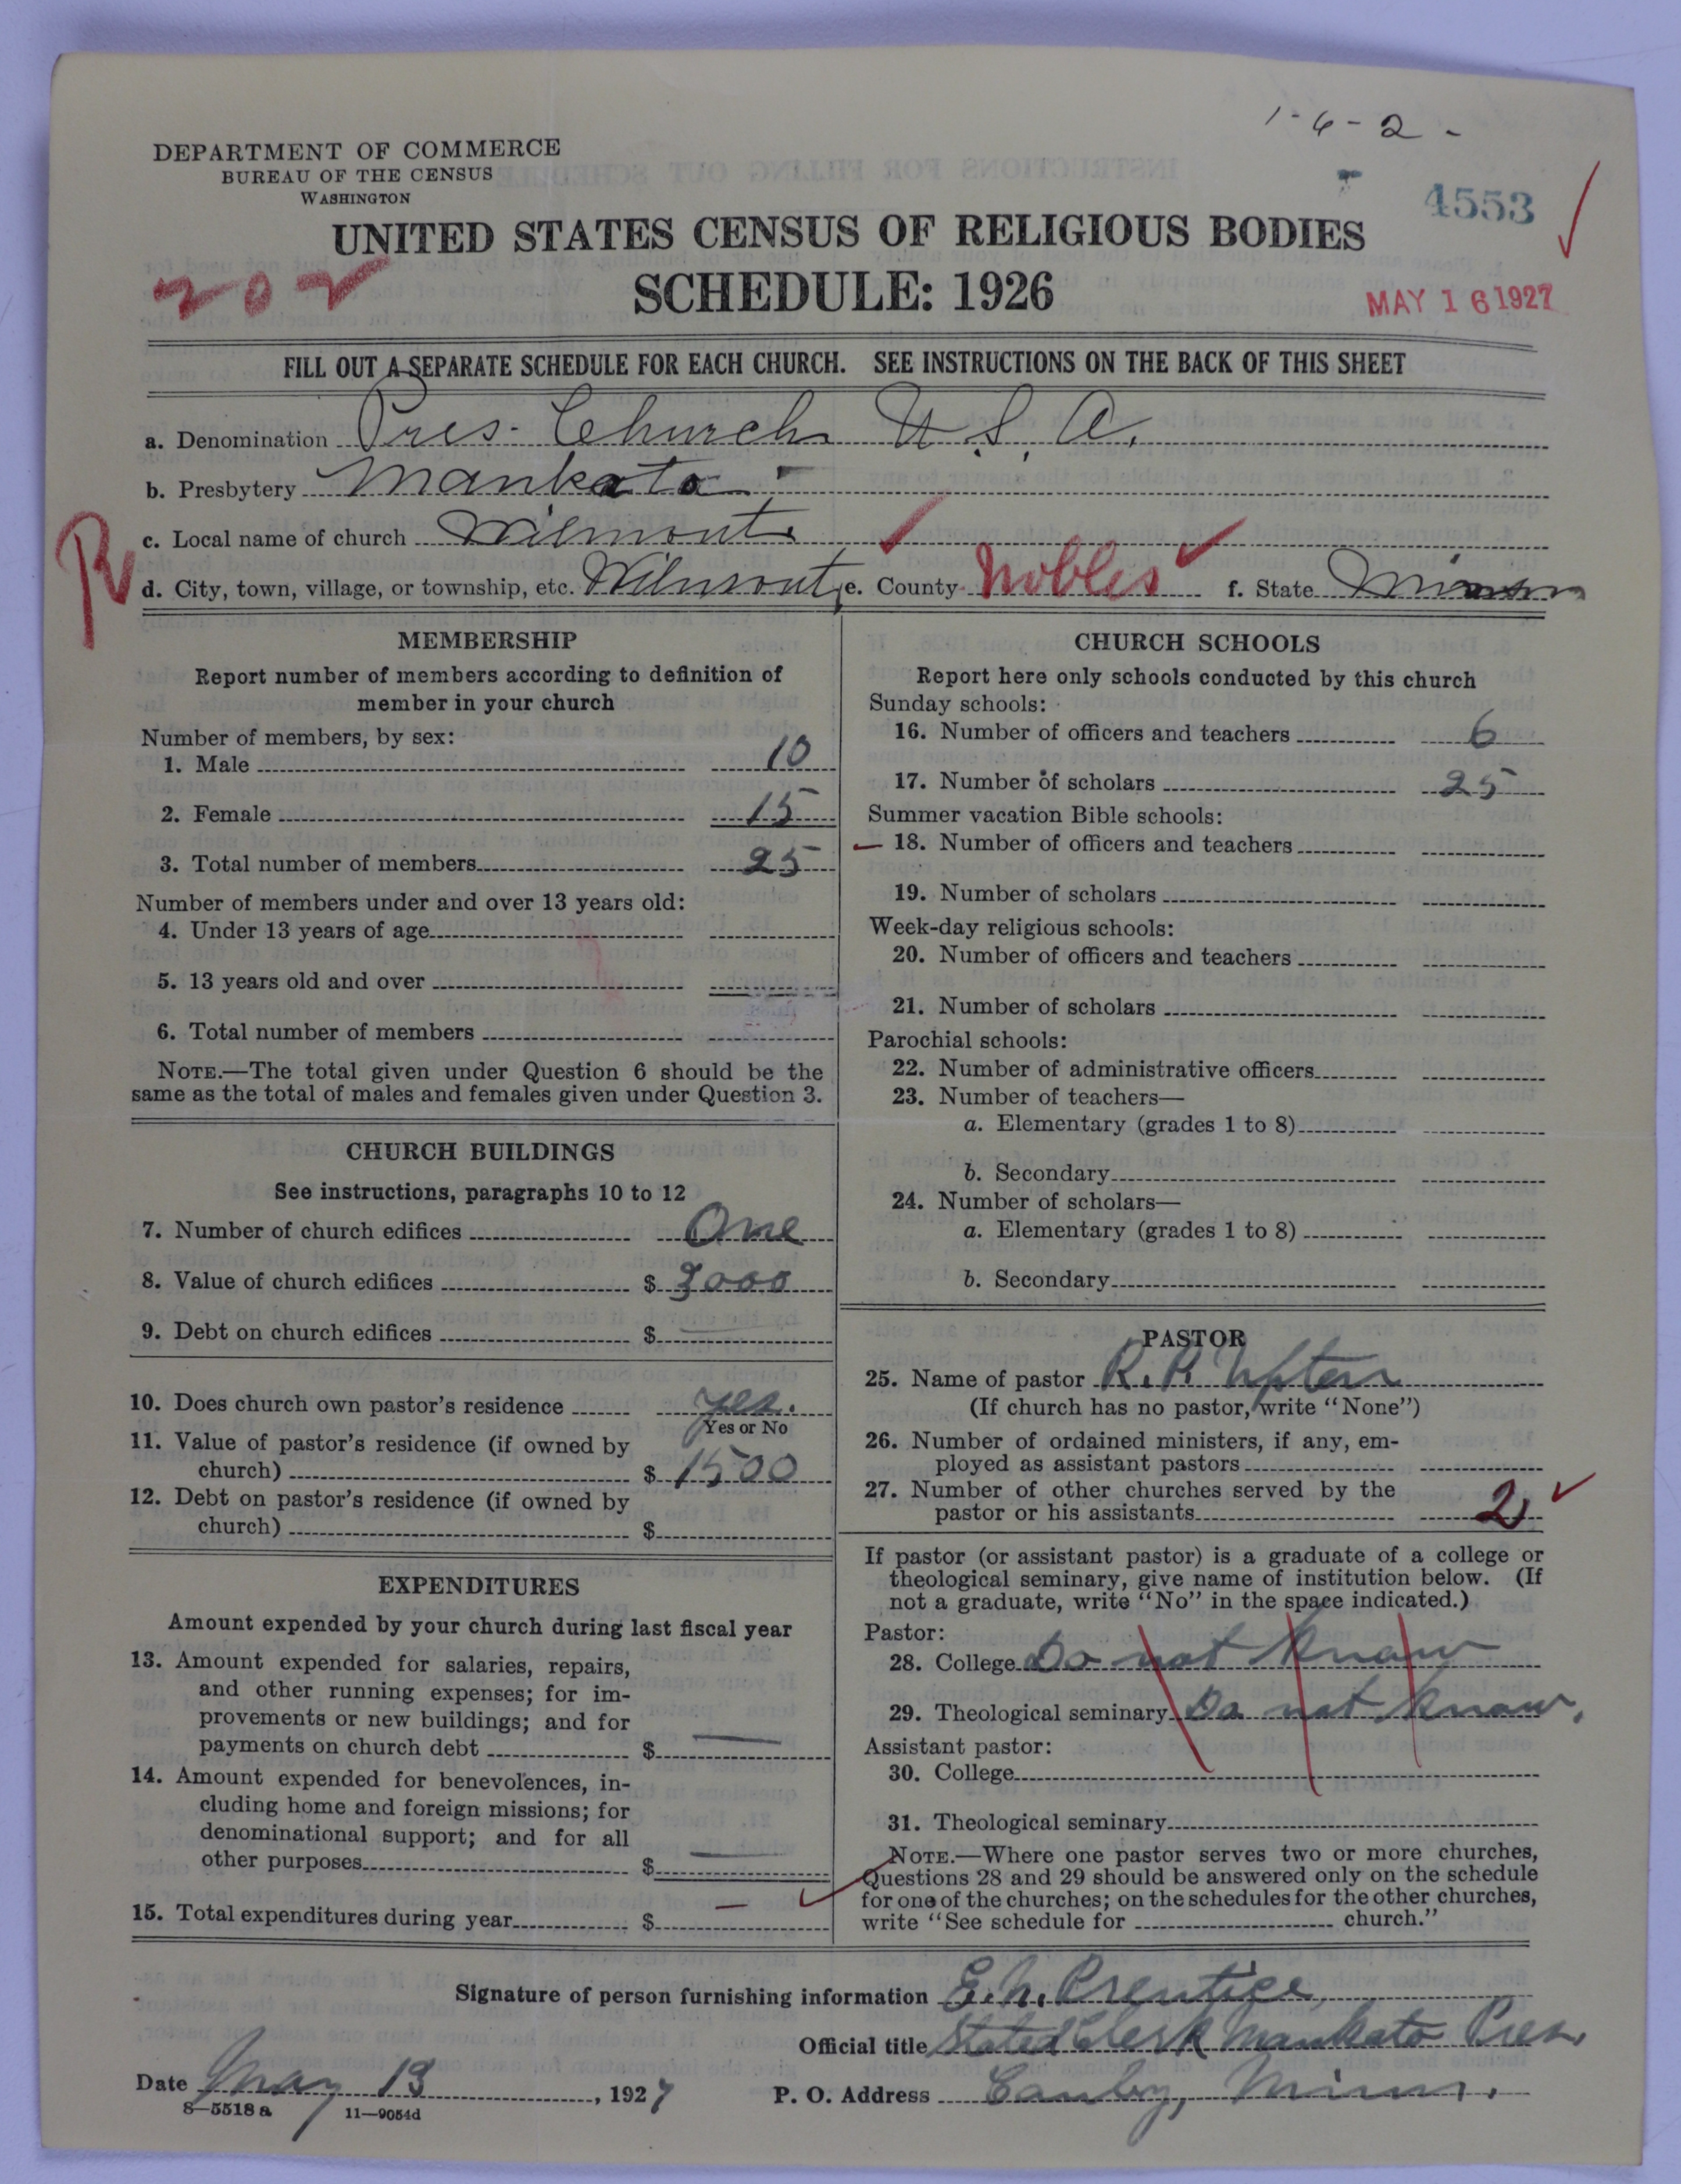 1-6-2-
DEPARTMENT OF COMMERCE
BUREAU OF THE CENSUS
WASHINGTON
4553
UNITED STATES CENSUS OF RELIGIOUS BODIES
202
SCHEDULE: 1926
MAY 16 1927
FILL OUT A SEPARATE SCHEDULE FOR EACH CHURCH. SEE INSTRUCTIONS ON THE BACK OF THIS SHEET
a. Denomination Pres. Church U.S.A.
b. Presbytery Mankato
c. Local name of church Wilmont
R
d. City, town, village, or township, etc. Wilmont, e. County Nobles f. State Minn
MEMBERSHIP
Report number of members according to definition of
member in your church
Number of members, by sex:
1. Male 10
2. Female 15
3. Total number of members 25
Number of members under and over 13 years old:
4. Under 13 years of age
5. 13 years old and over
6. Total number of members
NOTE.—The total given under Question 6 should be the
same as the total of males and females given under Question 3.
CHURCH BUILDINGS
See instructions, paragraphs 10 to 12
7. Number of church edifices One
8. Value of church edifices $ 3000
9. Debt on church edifices $
10. Does church own pastor's residence yes.
Yes or No
11. Value of pastor's residence (if owned by
church) $ 1500
12. Debt on pastor's residence (if owned by
church) $
EXPENDITURES
Amount expended by your church during last fiscal year
13. Amount expended for salaries, repairs,
and other running expenses; for im-
provements or new buildings; and for
payments on church debt $ —
14. Amount expended for benevolences, in-
cluding home and foreign missions; for
denominational support; and for all
other purposes $ —
15. Total expenditures during year $ —
CHURCH SCHOOLS
Report here only schools conducted by this church
Sunday schools:
16. Number of officers and teachers 6
17. Number of scholars 25
Summer vacation Bible schools:
18. Number of officers and teachers
19. Number of scholars
Week-day religious schools:
20. Number of officers and teachers
21. Number of scholars
Parochial schools:
22. Number of administrative officers
23. Number of teachers—
a. Elementary (grades 1 to 8)
b. Secondary
24. Number of scholars—
a. Elementary (grades 1 to 8)
b. Secondary
PASTOR
25. Name of pastor R. R.
(If church has no pastor, write "None")
26. Number of ordained ministers, if any, em-
ployed as assistant pastors
27. Number of other churches served by the
pastor or his assistants 2
If pastor (or assistant pastor) is a graduate of a college or
theological seminary, give name of institution below. (If
not a graduate, write "No" in the space indicated.)
Pastor:
28. College Do not know
29. Theological seminary Do not know.
Assistant pastor:
30. College
31. Theological seminary
NOTE.—Where one pastor serves two or more churches,
Questions 28 and 29 should be answered only on the schedule
for one of the churches; on the schedules for the other churches,
write "See schedule for church."
Signature of person furnishing information E. h. Prentice,
Official title Stated Clerk Mankato Pres.
Date May 13, 1927 P. O. Address Canby, Minn.
8—5518a 11—9054d